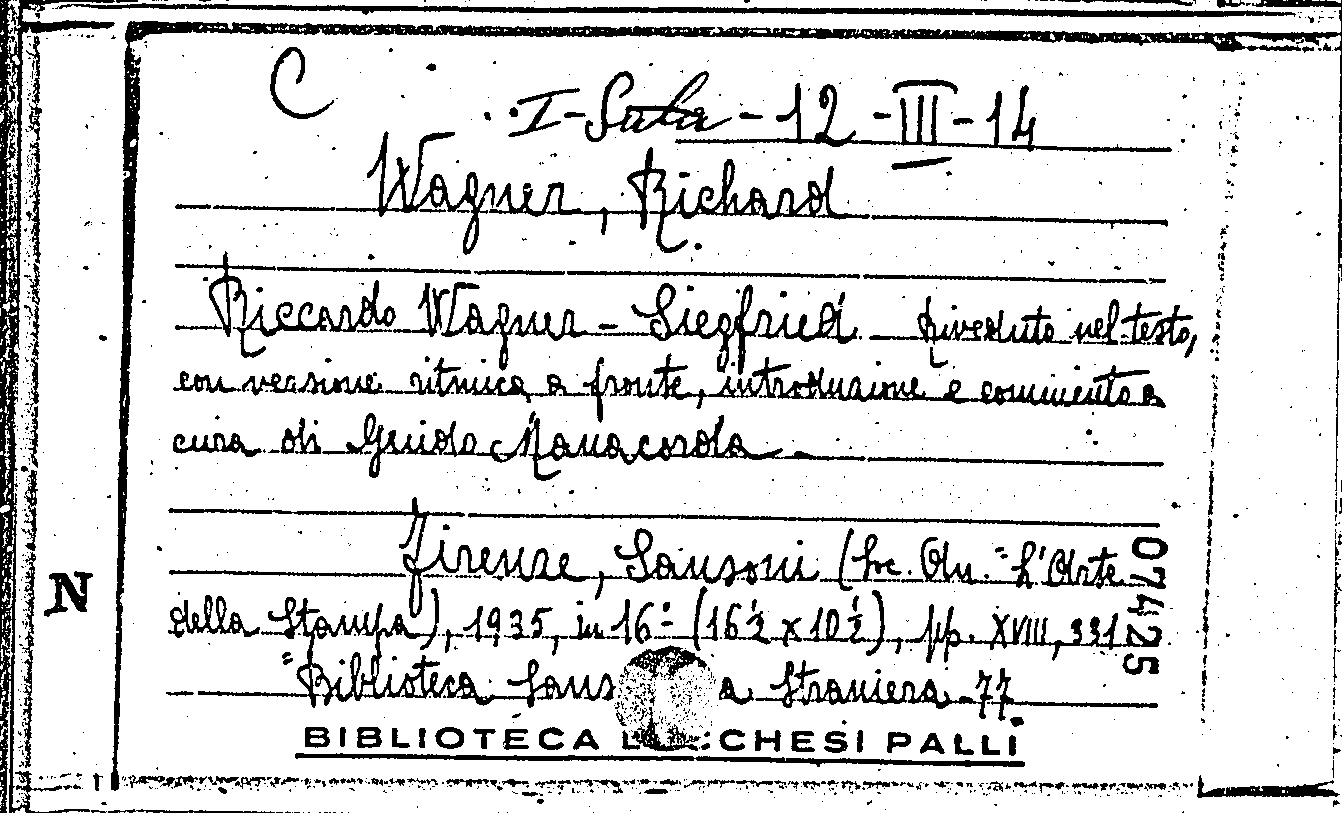 C
I-Sala-12-III-14
Wagner, Richard
Riccardo Wagner - Siegfried - Riveduto nel testo,
con versione ritmica a fronte, introduzione e commento a
cura di Guido Manacorda -
Firenze, Sansoni (Soc. An. "L'Arte
della Stampa), 1935, in 16º (16½ x 10½), pp. XVIII, 331
"Biblioteca Sans a Straniera - 77.
BIBLIOTECA L CCHESI PALLI
N
074425